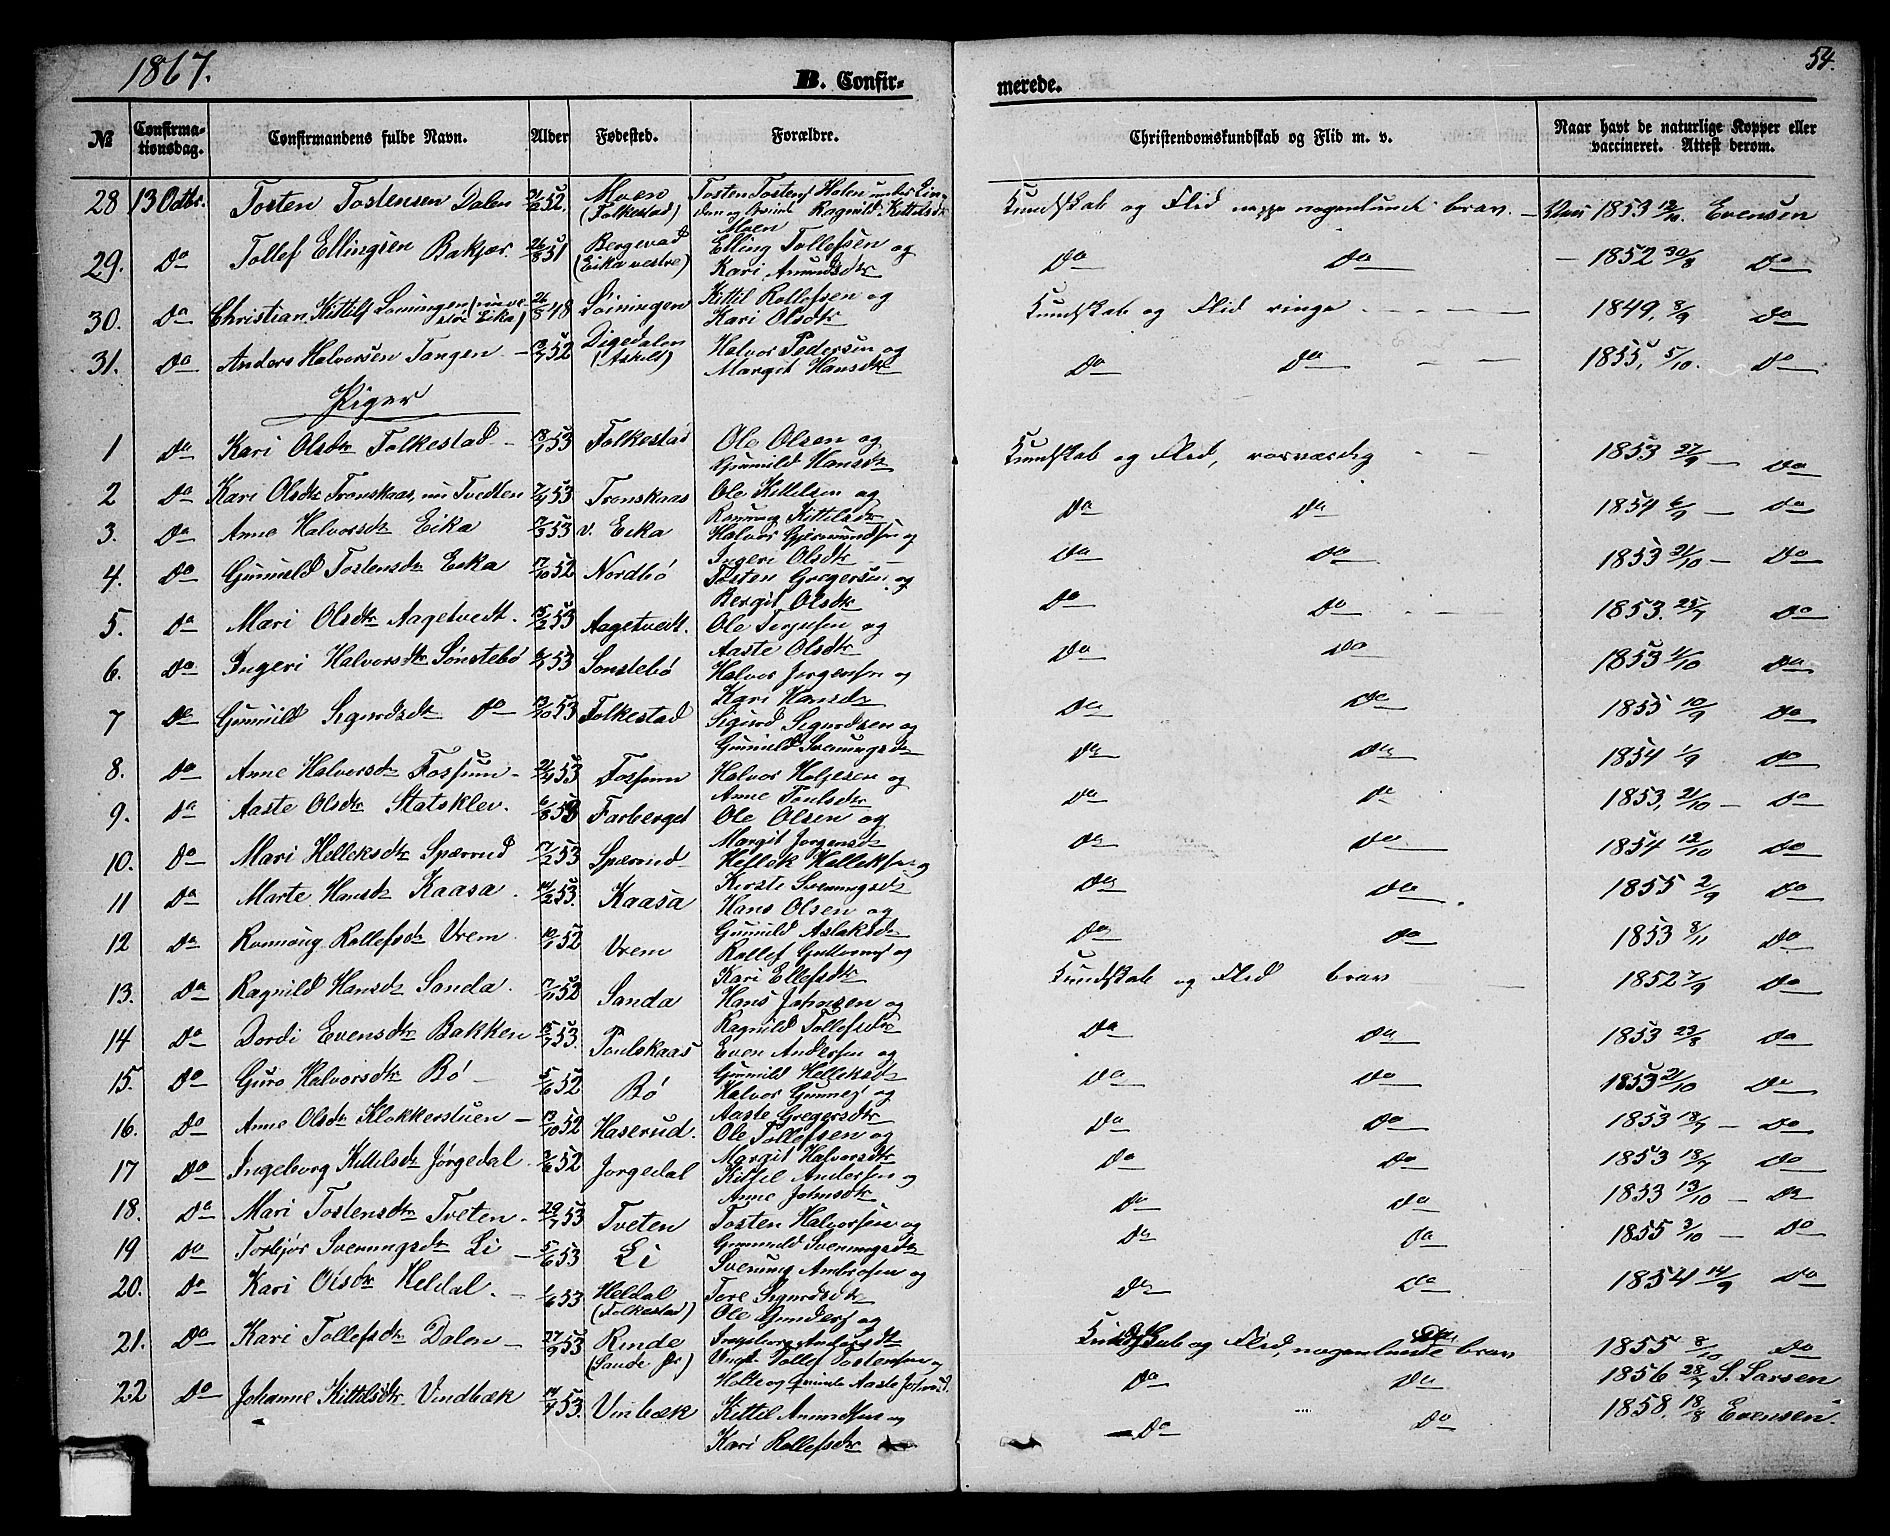 1867.
B. Confir-
merede.
54.
№ Confirma-tionsdag. Confirmandens fulde Navn. Alder Fødested. Forældre. Christendomskundskab og Flid m. v. Naar havt de naturlige Kopper eller vaccineret. Attest derom.
28 13 Octbr. Tosten Tostensen Dalen 52. Moen (Folkestad) Tosten Tostens Holen under Ragnild Kittilsdr Moen Kundskab og Flid neppe nogenlunde brav. 1853 12/10. Evensen
29. Do Tollef Ellingsen Bakjor. 26/8 51 Bergevad (Eika vestre) Elling Tollefsen og Kari Amundsdr Do Do 1852 30/8 Do
30. Do Christian Kittils Loiningen ( Eika) 26/8 48 Loiningen Kittil Rollefsen og Kari Olsdr Kundskab og Flid ringe 1849, 8/9 Do
31. Do Anders Halvorsen Tangen 52 Digedalen (Askild) Halvor Pedersen og Margit Hansdr Do Do 1855, 5/10. Do
Piger
1 Do Kari Olsdr Folkestad 18/1 53 Folkestad Ole Olsen og Gunnild Hansdr Kundskab og Flid, rosværdig 1853 27/9 Do
2 Do Kari Olsdr Tronskaas, nu Tvedten 53 Tronskaas Ole Kittilsen og Rønnog Kittilsdr Do Do 1854 6/9 Do
3. Do Anne Halvorsdr Eika 53 v. Eika Halvor Gjermundsen og Ingeri Olsdr Do Do 1853 21/10 Do
4. Do Gunnild Tostensdr Eika 17/10 52 Nordbø Tosten Gregersen og Bergit Olsdr Do Do 1853. 25/7 Do
5. Do Mari Olsdr Aagetvedt. 15/2 53 Aagetvedt. Ole og Aaste Olsdr Do Do 1853 4/10 Do
6. Do Ingeri Halvorsdr Sønstebø 53 Sønstebø Halvor Jorgensen og Kari Hansdr Do Do 1855 10/9 Do
7 Do Gunnild Sigurdsdr Do 53 Folkestad Sigurd Sigurdsen og Gunnild Sveinungsdr Do Do 1854 1/9 Do
8. Do Anne Halvorsdr Fossum 53 Fossum Halvor Holjesen og Anne Poulsdr Do Do 1853, 21/10 Do
9. Do Aaste Olsdr Statsklev. 6/8 53 Farberget Ole Olsen og Margit Jorgensdr Do Do 1854 12/10 Do
10. Do Mari Helleksdr Spærrud 17/2 53 Spærrud Hellek Helleksen og Kirste Sveinungsdr Do Do 1855 2/9 Do
11 Do Marte Hansdr Kaasa. 14/2 53. Kaasa Hans Olsen og Gunnild Aslaksdr Do Do 1853 8/11 Do
12 Do Rønnaug Rollefsdr Vrem. 52 Vrem Rollef Gullvegsen og Kari Ellefsdr Kundskab og Flid brav 1852 7/9 Do
13. Do Ragnild Hansdr Sanda. 52 Sanda Hans Johnsen og Ragnild Tollefsdr Do Do 1853 23/8 Do
14 Do Dordi Evensdr Bakken 15/7 53. Poulskaas Even Andersen og Gunnild Helleksdr Do Do 1853 21/10 Do
15. Do Guro Halvorsdr Bø 5/6 52 Bø Halvor Gunnes og Aaste Gregersdr Do Do 1853 18/7 Do
16. Do Anne Olsdr Klokkerstuen 13/10 52 Haserud. Ole Tollefsen og Margit Halvorsdr Do Do 1853 18/7 Do
17 Do Ingeborg Kittilsdr Jørgedal. 52 Jorgedal Kittil Andersen og Anne Johnsdr Do Do 1853 13/10 Do
18. Do Mari Tostensdr Tveten. 29/7 53 Tveten Tosten Halvorsen og Gunnild Sveinungsdr Do Do 1855 3/10 Do
19 Do Torbjør Sveinungsdr Li 5/6 53 Li Sveinung Ambrosen og Tore Sigurdsdr Do Do 1854 14/9 Do
20. Do Kari Olsdr Heldal. 53 Heldal (Folkestad) Ole Gunders og Ingeborg Andersdr Do Do 1855 8/10 Do
21. Do Kari Tollefsdr Dalen 27/9 53 Rinde (Saude Pr) Ungk. Tollef Tostensen Holte og Aaste Johnsd. Kundskab og Flid, nogenlunde brav 1856 28/7 S. Larsen
22 Do Johanne Kittilsdr Vindbæk 53. Vinbæk Kittil Amundsen og Kari Rollefsdr Do Do 1858. 18/8 Evensen.